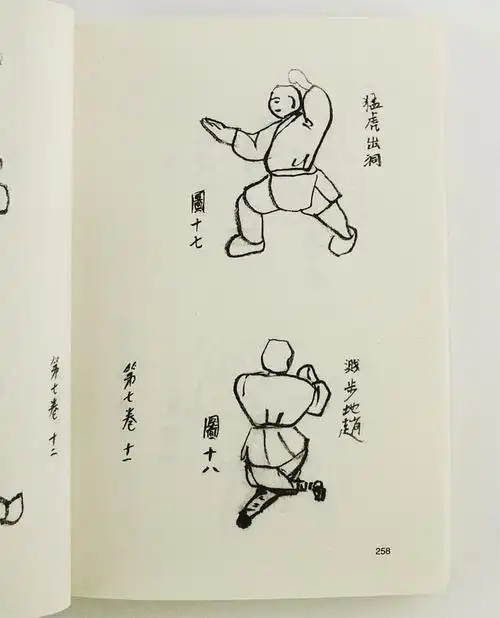 猛虎出洞
圖十七
步地趟
圖十八
第七卷 十一
第七卷 十二
258